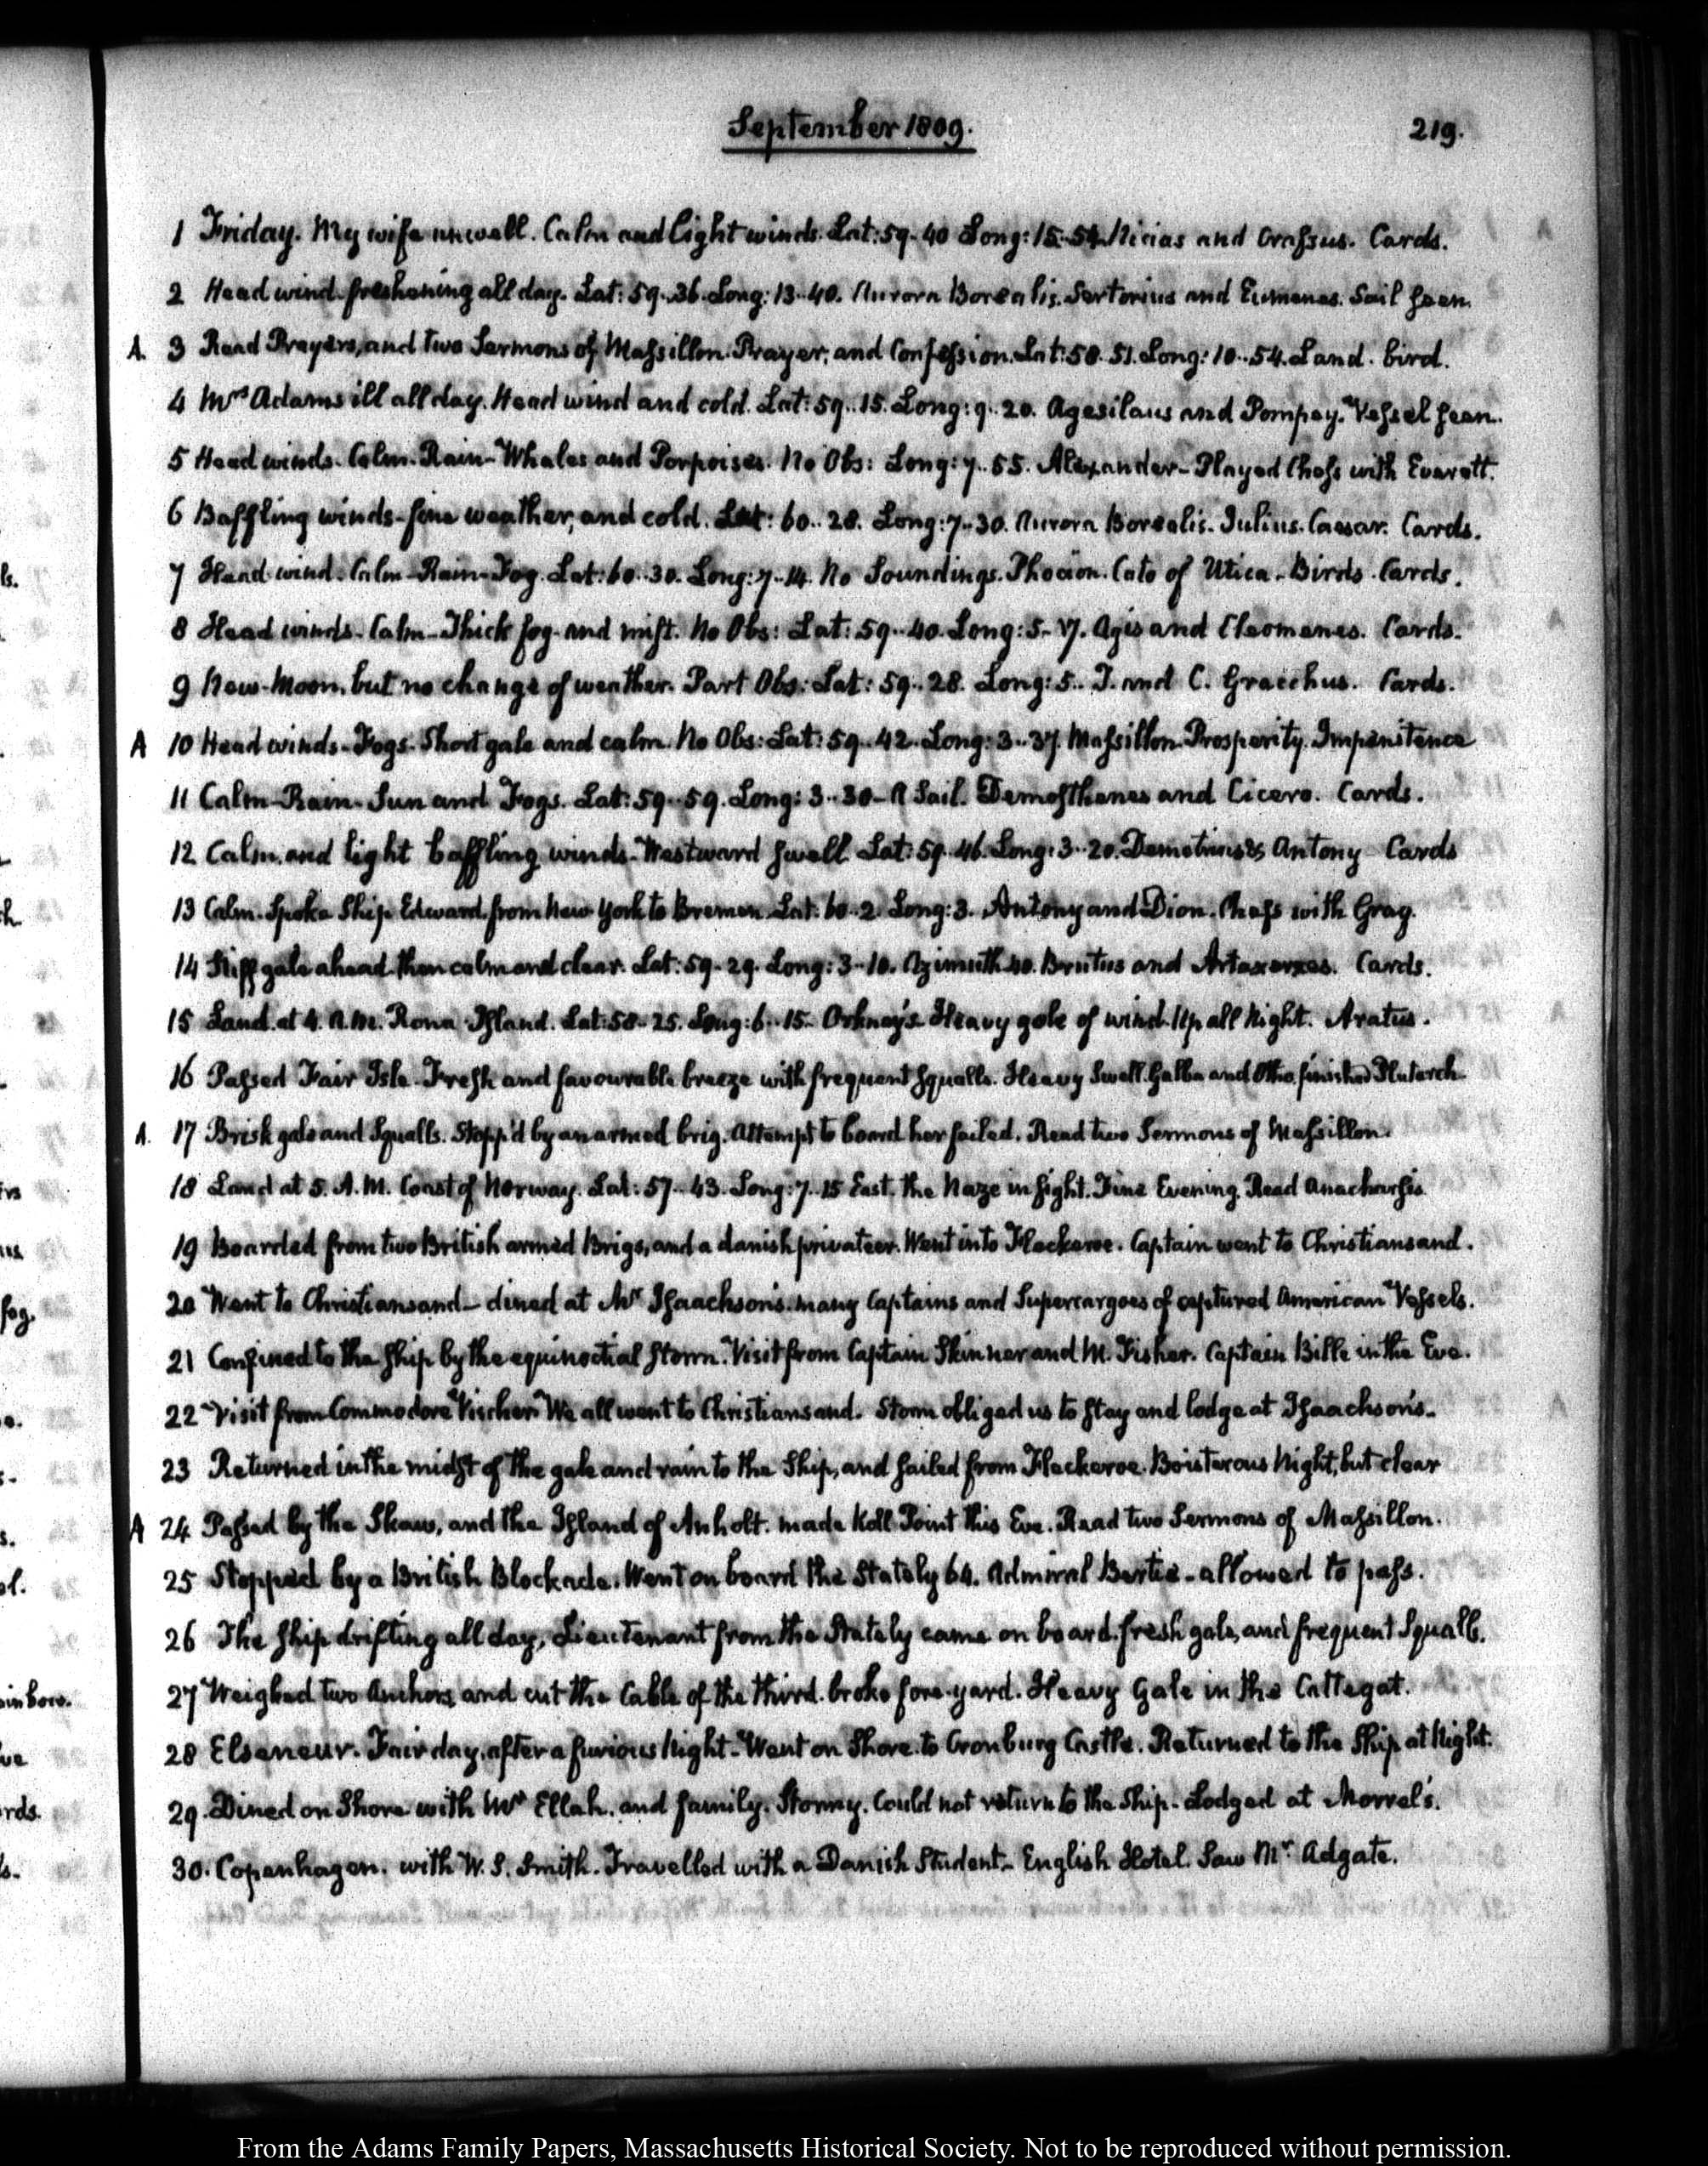 September 1809.
219.
1 Friday. My wife unwell. Calm and light winds. Lat: 59-40 Long: 15-54. Nicias and Crassus. Cards.
2 Head wind freshening all day. Lat: 59..36. Long: 13-40. Aurora Borealis. Sertorius and Eumenes. Sail seen.
A. 3 Read Prayers, and two Sermons of Massillon. Prayer, and Confession. Lat: 58. 51. Long: 10..54. Land. bird.
4 Mrs Adams ill all day. Head wind and cold. Lat: 59..15. Long: 9..20. Agesilaus and Pompey. Vessel seen.
5 Head winds. Calm. Rain- Whales and Porpoises. No Obs: Long: 7..55. Alexander- Played Chess with Everett.
6 Baffling winds- fine weather, and cold. Lat: 60..28. Long: 7-30. Aurora Borealis. Julius. Caesar. Cards.
7 Head wind. Calm- Rain- Fog. Lat: 60..30. Long: 7-14. No Soundings. Phocion. Cato of Utica- Birds. Cards.
8 Head winds- Calm- Thick fog- and mist. No Obs: Lat: 59..40. Long: 5-17. Agis and Cleomenes. Cards.
9 New-Moon, but no change of weather. Part Obs: Lat: 59..28. Long: 5.. T. and C. Gracchus. Cards.
A 10 Head winds- Fogs. Short gale and calm. No Obs: Lat: 59..42. Long: 3..37. Massillon. Prosperity. Impenitence
11 Calm- Rain- Sun and Fogs. Lat: 59..59. Long: 3..30- A Sail. Demosthenes and Cicero. Cards.
12 Calm, and light baffling winds- Westward swell. Lat: 59..46. Long: 3..20. Demetrius & Antony- Cards
13 Calm. Spoke Ship Edward from New York to Bremen. Lat: 60..2. Long: 3. Antony and Dion. Chess with Gray.
14 Stiff gale ahead then calm and clear. Lat: 59-29. Long: 3-10. Azimuth 40. Brutus and Artaxerxes. Cards.
15 Land at 4. A.M. Rona Island. Lat: 58-25. Long: 6..15- Orkney's. Heavy gale of wind. Up all Night. Aratus.
16 Passed Fair Isle. Fresh and favourable breeze with frequent squalls. Heavy Swell. Galba and Otho, finished Plutarch
A. 17 Brisk gale and Squalls. Stopp'd by an armed brig. Attempt to board her failed. Read two Sermons of Massillon.
18 Land at 5. A.M. Coast of Norway. Lat: 57-43. Long: 7..15 East. The Naze in sight. Fine Evening. Read Anacharsis
19 Boarded from two British armed Brigs, and a danish privateer. Went into Fleckeroe. Captain went to Christiansand.
20 Went to Christiansand- dined at Mr Isaachson's. many Captains and Supercargoes of captured American Vessels.
21 Confined to the ship by the equinoctial storm. Visit from Captain Skinner and M. Fisher. Captain Bille in the Eve.
22 Visit from Commodore Vischer. We all went to Christiansand. Storm obliged us to stay and lodge at Isaachson's.
23 Returned in the midst of the gale and rain to the Ship, and sailed from Fleckeroe. Boisterous Night, but clear
A 24 Passed by the Skaw, and the Island of Anholt. made Koll Point this Eve. Read two Sermons of Massillon.
25 Stopped by a British Blockade. Went on board the Stately 64. Admiral Bertie- allowed to pass.
26 The ship drifting all day, Lieutenant from the Stately came on board. fresh gale, and frequent Squalls.
27 Weighed two Anchors, and cut the Cable of the third. broke fore-yard. Heavy Gale in the Cattegat.
28 Elseneur. Fair day, after a furious Night- Went on Shore to Cronburg Castle. Returned to the Ship at Night.
29. Dined on Shore with Mr Ellah. and family. Stormy. Could not return to the Ship- Lodged at Morrel's.
30. Copenhagen. with W. S. Smith. Travelled with a Danish Student- English Hotel. Saw Mr Adgate.
From the Adams Family Papers, Massachusetts Historical Society. Not to be reproduced without permission.